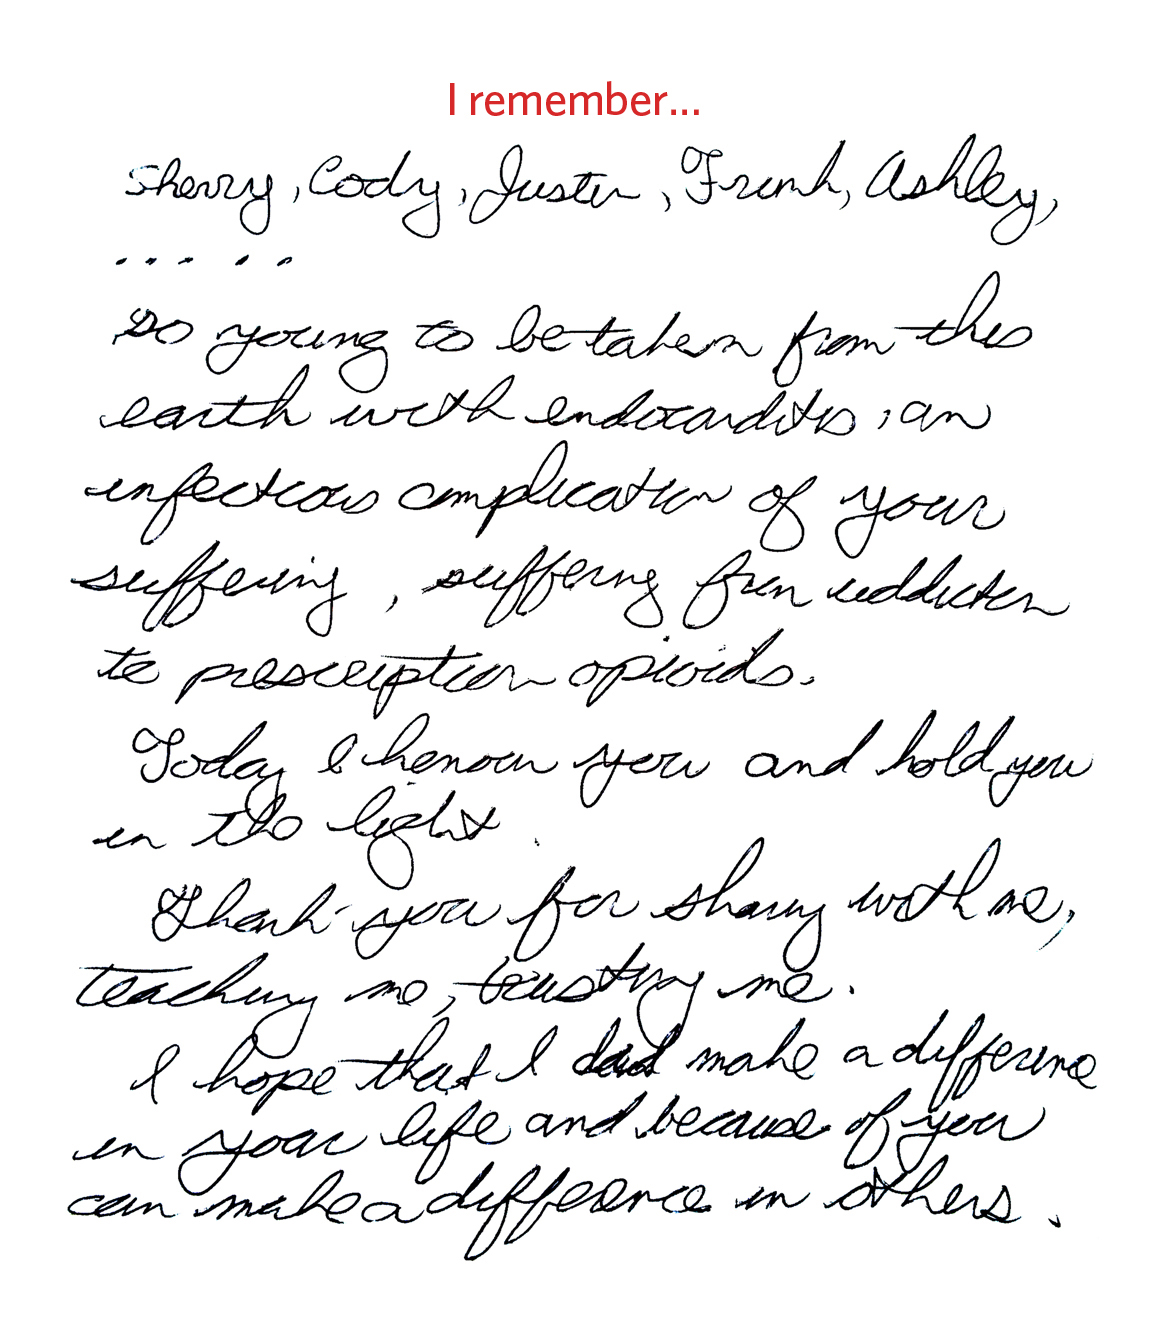 I remember...
Sherry, Cody, Justin, Frank, Ashley,
. . . . .
So young to be taken from this
earth with endocarditis, an
infectious complication of your
suffering, suffering from addiction
to prescription opioids.
Today I honour you and hold you
in the light.
Thank you for sharing with me,
teaching me, trusting me.
I hope that I did make a difference
in your life and because of you
can make a difference in others.